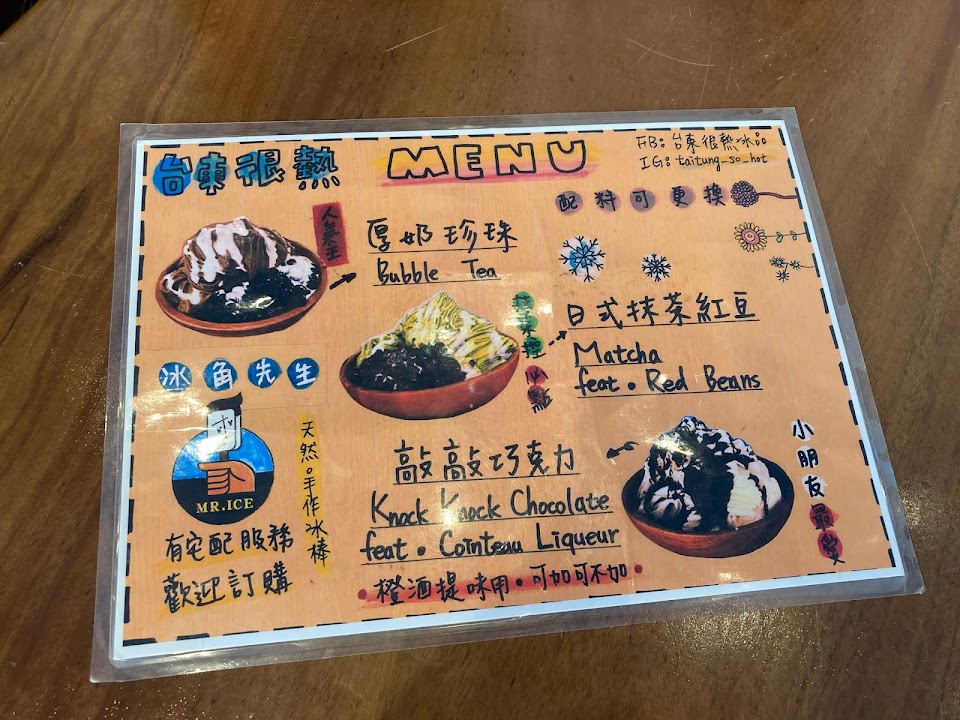 台東很熱
MENU
FB: 台東很熱冰品
IG: taitung_so_hot
配料可更換
人氣王
厚奶珍珠
Bubble Tea
抹茶控
必點
日式抹茶紅豆
Matcha
feat. Red Beans
冰角先生
MR.ICE
天然。手作冰棒
有宅配服務
歡迎訂購
敲敲巧克力
Knock Knock Chocolate
feat. Cointeau Liqueur
橙酒提味用。可加可不加
小朋友最愛